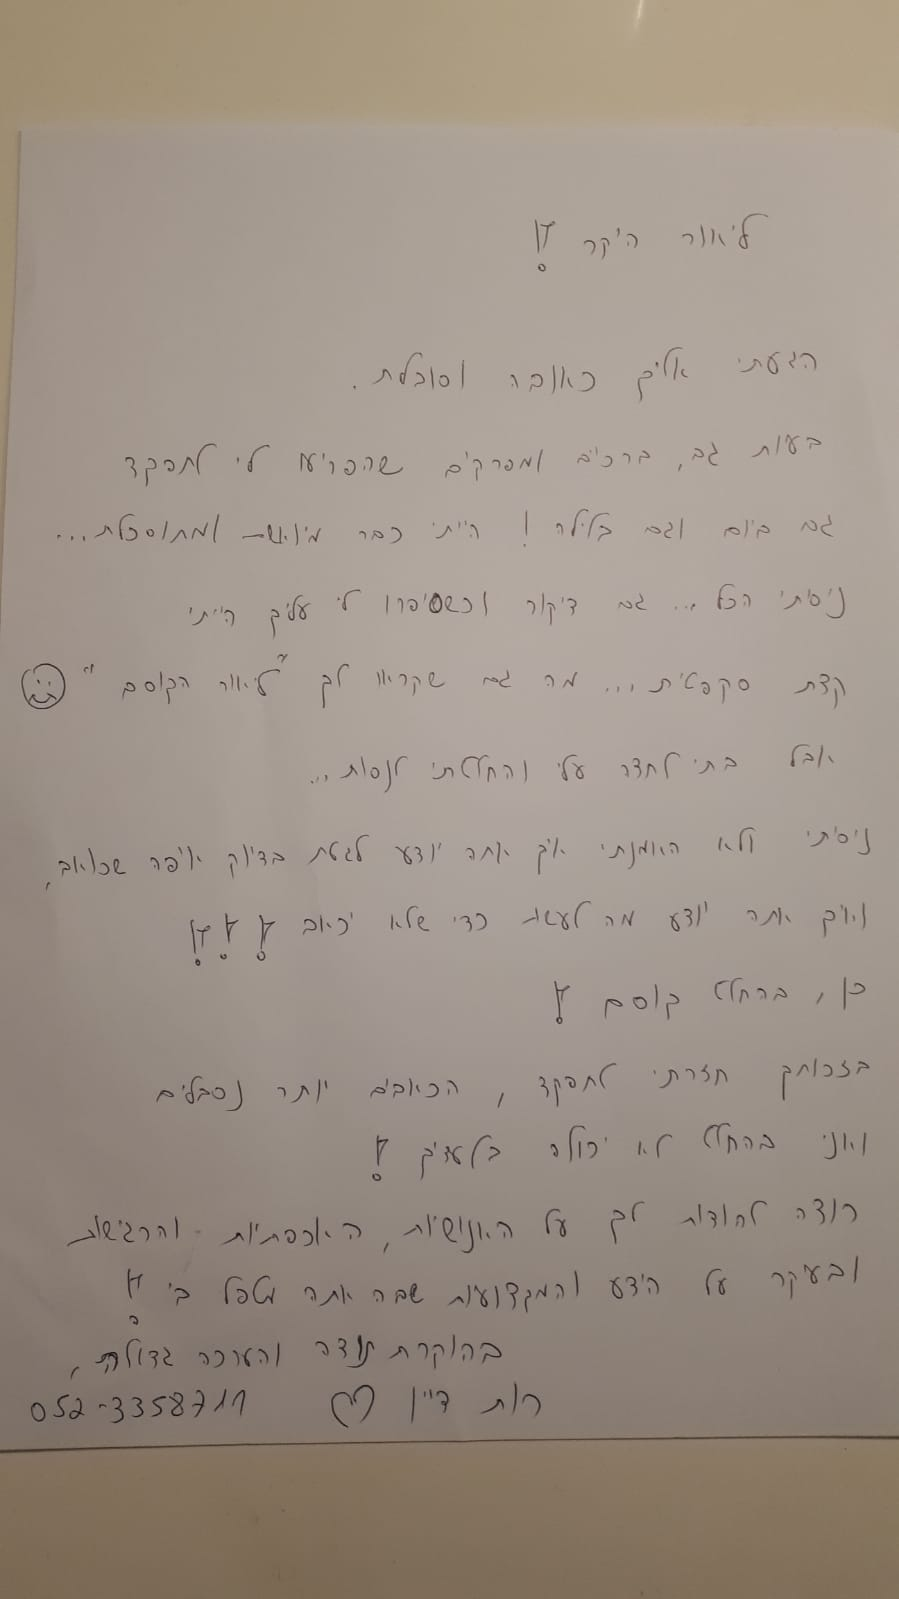 ליאור היקר !
הגעתי אליך כאובה וסובלת.
בעיות גב, ברכיים ומפרקים שהפריעו לי לתפקד
גם ביום וגם בלילה! הייתי כבר מיואשת ומתוסכלת...
ניסיתי הכל... גם דיקור וכשסיפרו לי עליך הייתי
קצת סקפטית... מה גם שקראו לך "ליאור הקוסם"
אבל בתי לחצה עלי והחלטתי לנסות...
ניסיתי ולא האמנתי איך אתה יודע לגעת בדיוק איפה שכואב,
ואיך אתה יודע מה לעשות כדי שלא יכאב !!!
כן, בהחלט קוסם !
בזכותך חזרתי לתפקד, הכאבים יותר נסבלים
ואני בהחלט לא יכולה בלעדיך !
רוצה להודות לך על האנושיות, האכפתיות והרגישות
ובעיקר על הידע והמקצועיות שבה אתה מטפל בי !
בהוקרת תודה והערכה גדולה,
רות דיין ♡ 052-3358711